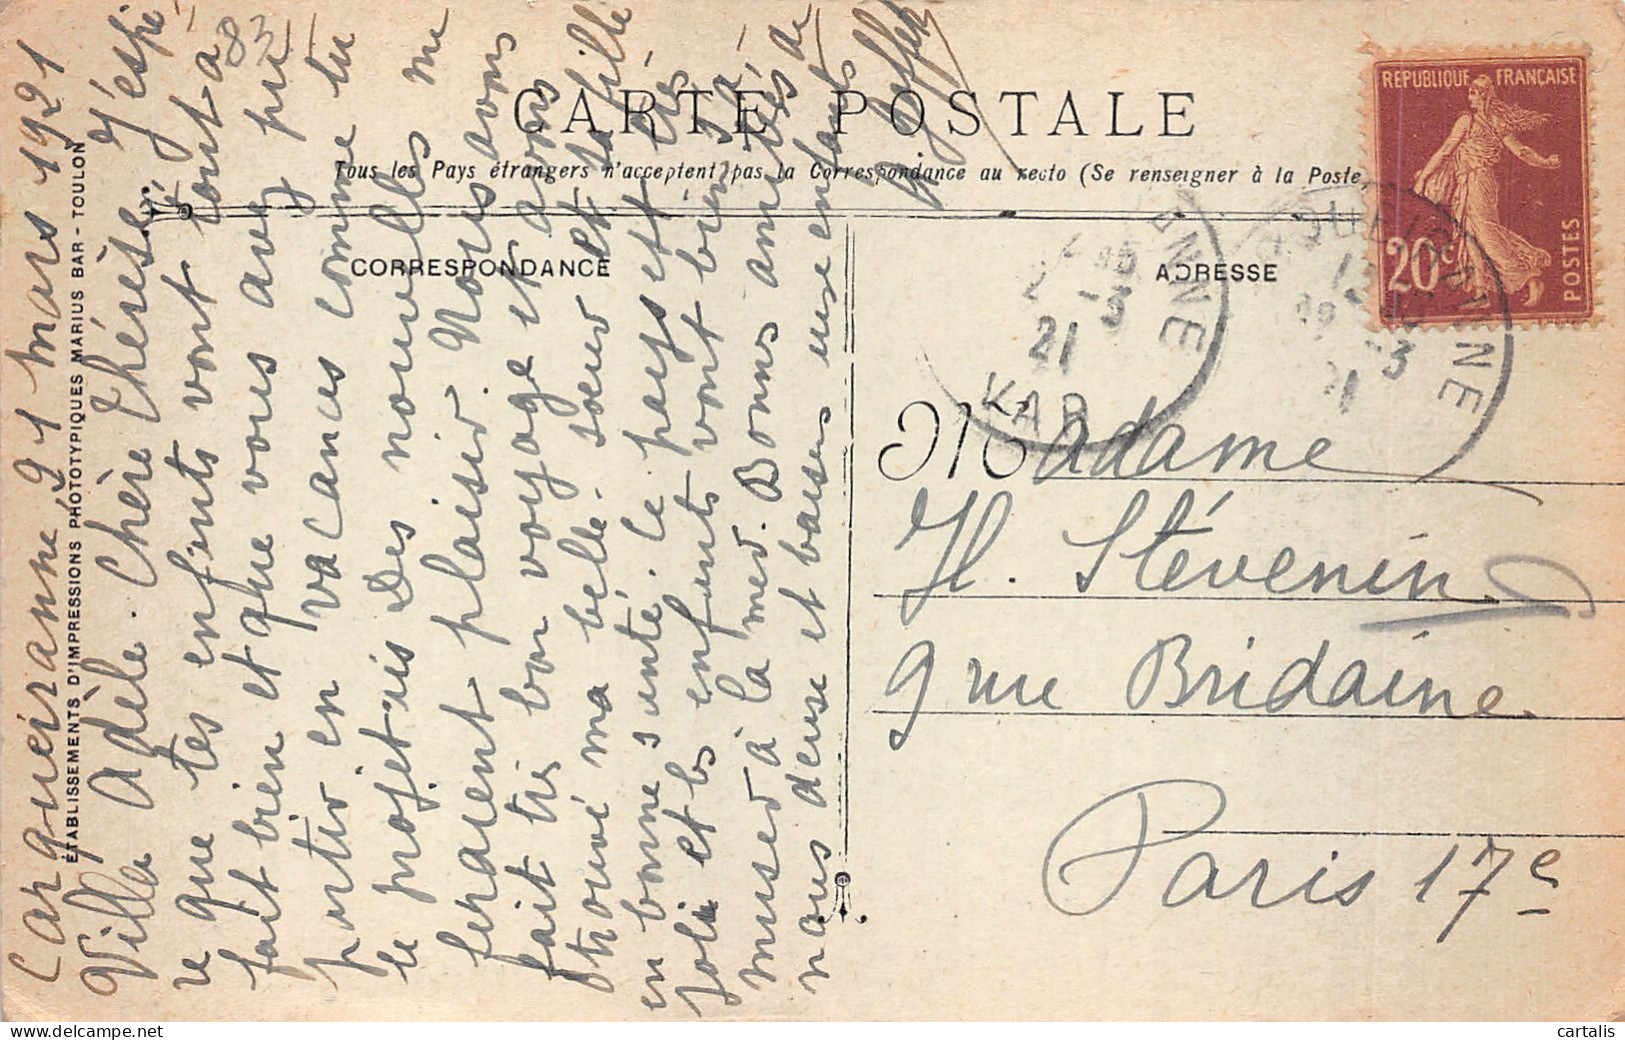 CARTE POSTALE
Tous les Pays étrangers n'acceptent pas la Correspondance au recto (Se renseigner à la Poste
CORRESPONDANCE
ADRESSE
ÉTABLISSEMENTS D'IMPRESSIONS PHOTOTYPIQUES MARIUS BAR - TOULON
Carqueiranne, 21 mars 1921
83
Villa Adèle. Chère Thérèse, J'espè-
re que tes enfants vont tout à
fait bien et que vous avez pu
partir en vacances comme tu
le projetais. Des nouvelles me
feraient plaisir. Nous avons
fait très bon voyage et avons
trouvé ma belle-sœur et sa fille
en bonne santé. Le pays est très
joli et les enfants vont bien s'a-
muser à la mer. Bonnes amitiés de
nous deux et baisers aux enfants
RÉPUBLIQUE FRANÇAISE
20c
POSTES
21
VAR
Madame
H. Stévenin
9 rue Bridaine
Paris 17e
cartalis